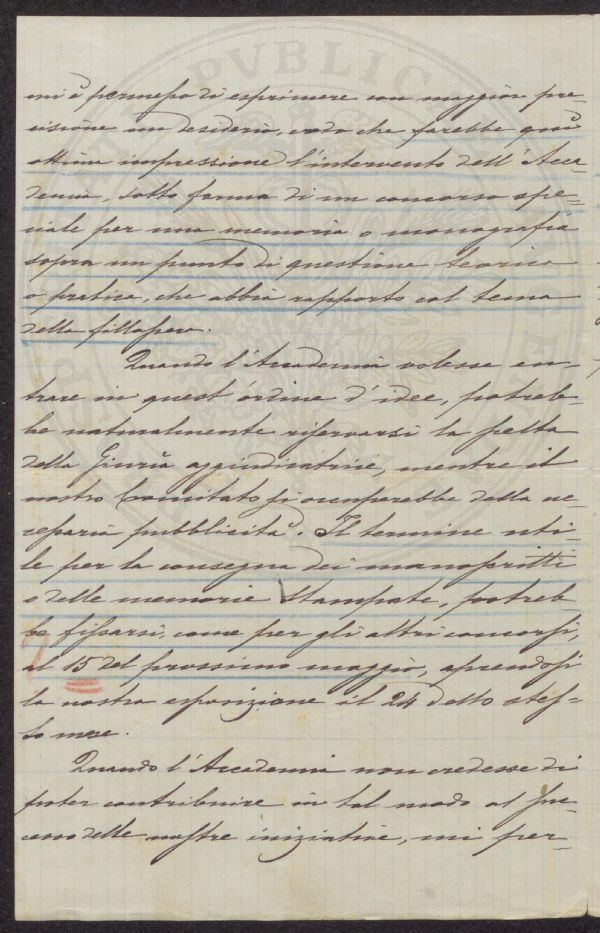 mi è permesso di esprimere con maggior pre=
cisione un desiderio, credo che farebbe quì
ottima impressione l'intervento dell'Acca=
demia, sotto forma di un concorso spe=
ciale per una memoria o monografia
sopra un punto di questione teorica
o pratica, che abbia rapporto col tema
della fillossera.
Quando l'Accademia volesse en=
trare in quest'ordine d'idee, potreb=
be naturalmente riservarsi la scelta
della Giuria aggiudicatrice, mentre il
nostro Comitato si occuperebbe della ne=
cessaria pubblicità. Il termine uti=
le per la consegna dei manoscritti
o delle memorie stampate, potreb=
be fissarsi, come per gli altri concorsi,
al 15 del prossimo maggio, aprendosi
la nostra esposizione il 24 detto stes=
so mese.
Quando l'Accademia non credesse di
poter contribuire in tal modo al suc=
cesso delle nostre iniziative, mi per=